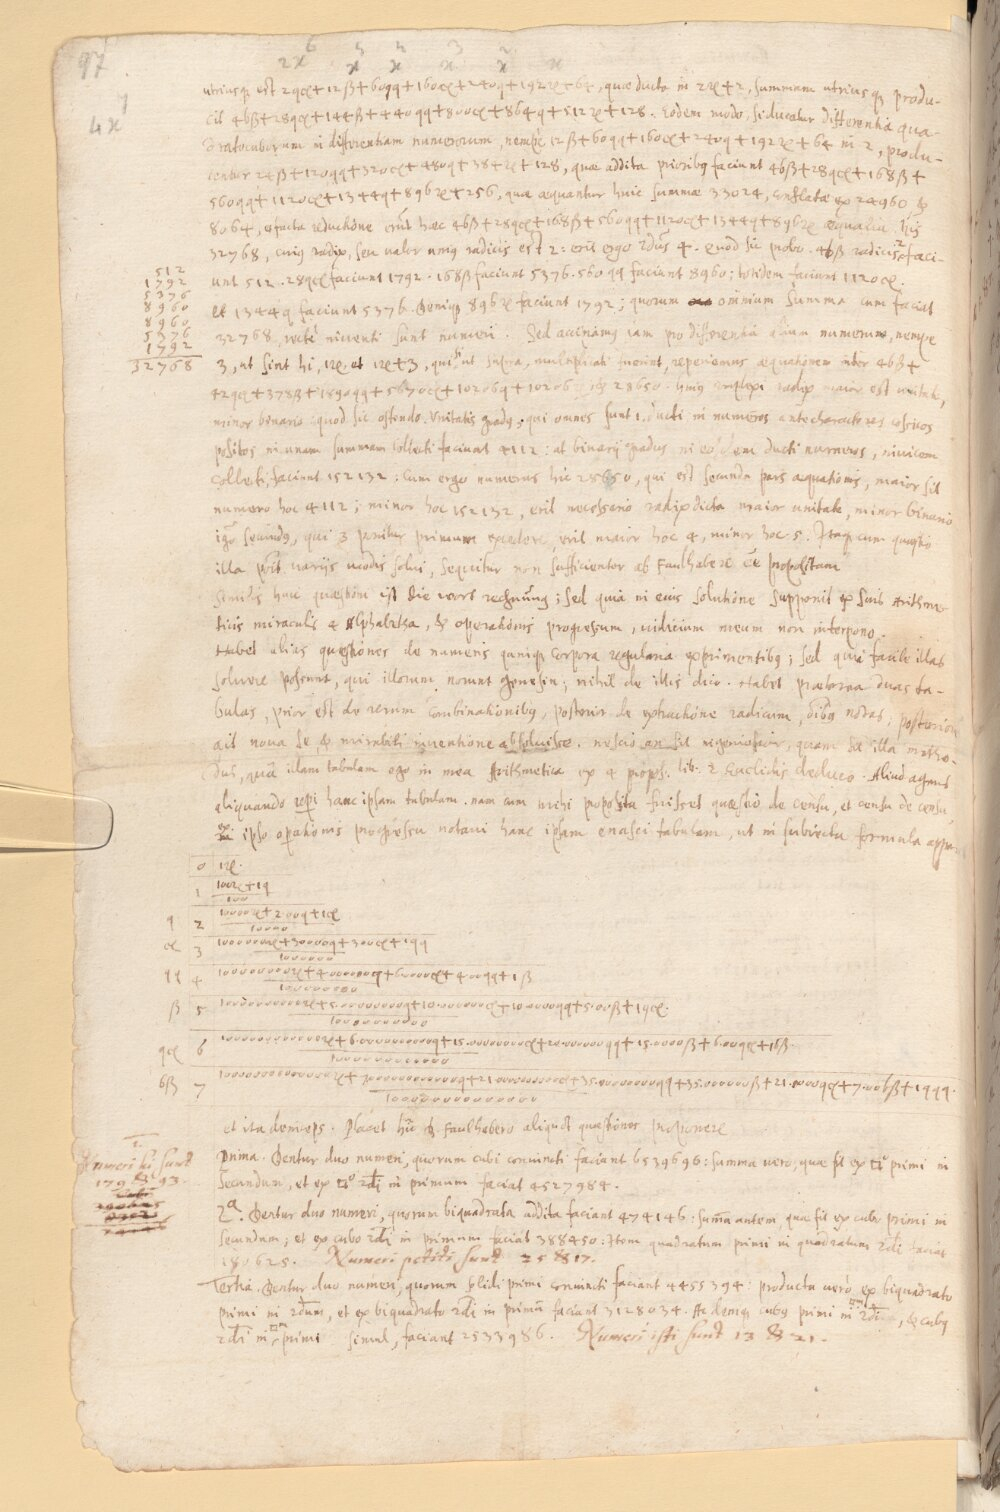 97
2x⁶ x⁵ x⁴ x³ x² x
7
4x
utriusq; est 2qcƶ + 12ß + 60qq + 160cƶ + 240q + 192ƶ + 64, quae ducta in 2ƶ + 2, summam utriusq; produ-
cit 4bß + 28qcƶ + 144ß + 440qq + 800cƶ + 864q + 512ƶ + 128. Eodem modo, si ducatur differentia qua-
dratocuborum in differentiam numerorum, nempe 12ß + 60qq + 160cƶ + 240q + 192ƶ + 64 in 2, produ-
centur 24ß + 120qq + 320cƶ + 480q + 384ƶ + 128, quae addita prioribq faciunt 4bß + 28qcƶ + 168ß +
560qq + 1120cƶ + 1344q + 896ƶ + 256, quae aequantur huic summae 33024, conflatae ex 24960 &
8064, et facta reductione erũt haec 4bß + 28qcƶ + 168ß + 560qq + 1120cƶ + 1344q + 896ƶ aequalia his
32768, cuiq radix, seu valor uniq radicis est 2: erit ergo 2dus 4. Quod sic probo. 4bß radicis 2 faci-
unt 512. 28qcƶ faciunt 1792. 168ß faciunt 5376. 560qq faciunt 8960; totidem faciunt 1120cƶ.
et 1344q faciunt 5376. Deniq; 896ƶ faciunt 1792; quorum omnium summa cum faciat
32768, recte inventi sunt numeri. Sed accinamq iam pro differentia alium numerum, nempe
3, ut sint hi, 1ƶ, et 1ƶ + 3, qui si ut supra, multiplicati fuerint, reperiemus aequationem inter 4bß +
42qcƶ + 378ß + 1890qq + 5670cƶ + 10206q + 10206ƶ et 28650. uniq radix maior est unitate,
minor binario: quod sic ostendo. Unitatis gradq, qui omnes sunt 1. ducti in numeros ante characteres cossicos
positos in unam summam collecti faciunt 4112: at binarij gradus in eosdem ducti numeros, invicem
collecti, faciunt 152132: Cum ergo numerus hic 28650, qui est secunda pars aequationis, maior sit
numero hoc 4112; minor hoc 152132, erit necessario radix dicta maior unitate, minor binario
igr secundq, qui 3 primum excedere, erit maior hoc 4, minor hoc 5. Itaq; cum quaestio
illa varijs modis solvi, sequitur non sufficienter ab Faulhabere eẽ propositam
Similis huic quaestioni est die wort rechnung; sed quia in eius solutione supponit ex suis Arithme-
ticis miraculis 4 Alphabetha, & operationis progressum, iudicium meum non interpono.
Habet alias quaestiones de numeris quinq; corpora regularia exprimentibq; sed quia facile illas
solvere possunt, qui illorum norunt genesin; nihil de illis dico. Habet praeterea duas ta-
bulas, prior est de rerum combinationibq, posterior de extractione radicum, oĩbq notas; posteriorem
ait nova se, & mirabili inventione absolvisse. nescio an sit ingeniosior, quam sit illa metho-
dus, quâ illam tabulam ego in mea Arithmetica ex 4 propos. lib. 2 Euclidis deduco. Aliud agens
aliquando reperi hanc ipsam tabulam. nam cum mihi proposita fuisset quaestio de censu, et censu de censu
ex ipso operationis progressu notavi hanc ipsam enasci tabulam, ut in subiecta formula appa-
512
1792
5376
8960
8960
5376
1792
32768
0 1ƶ.
1 100ƶ + 1q
100
q 2 10000ƶ + 200q + 1cƶ
10000
cƶ 3 1000000ƶ + 30000q + 300cƶ + 1qq
1000000
qq 4 100000000ƶ + 4000000q + 60000cƶ + 400qq + 1ß
100000000
ß 5 10000000000ƶ + 500000000q + 10000000cƶ + 100000qq + 500ß + 1qcƶ.
10000000000
qcƶ 6 1000000000000ƶ + 60000000000q + 1500000000cƶ + 20000000qq + 150000ß + 600qcƶ + 1bß.
1000000000000
bß 7 100000000000000ƶ + 7000000000000q + 210000000000cƶ + 3500000000qq + 35000000ß + 210000qcƶ + 700bß + 1qqq.
100000000000000
et ita deinceps. Placet hĩc D. Faulhabero aliquot quaestiones proponere
Prima. Dentur duo numeri, quorum cubi coniuncti faciant 6539696: summa vero, quae fit ex cubo primi in
secundum, et ex cubo 2di in primum faciat 4527984.
1.
Numeri hi sunt
179 & 93.
2a. Dentur duo numeri, quorum biquadrata addita faciant 474146: summa antem, quae fit ex cubo primi in
secundum; et ex cubo 2di in primum faciat 388450: Item quadratum primi in quadratum 2di faciat
180625. Numeri petiti sunt 25 & 17.
Tertia. Dentur duo numeri, quorum solidi primi coniuncti faciant 4455394: producta verò ex biquadrato
primi in 2dum, et ex biquadrato 2di in primũ faciant 3128034. Ac deniq; cubq primi in 2di, & cubq
2di in primi simul, faciant 2533986. Numeri isti sunt 13 & 21.